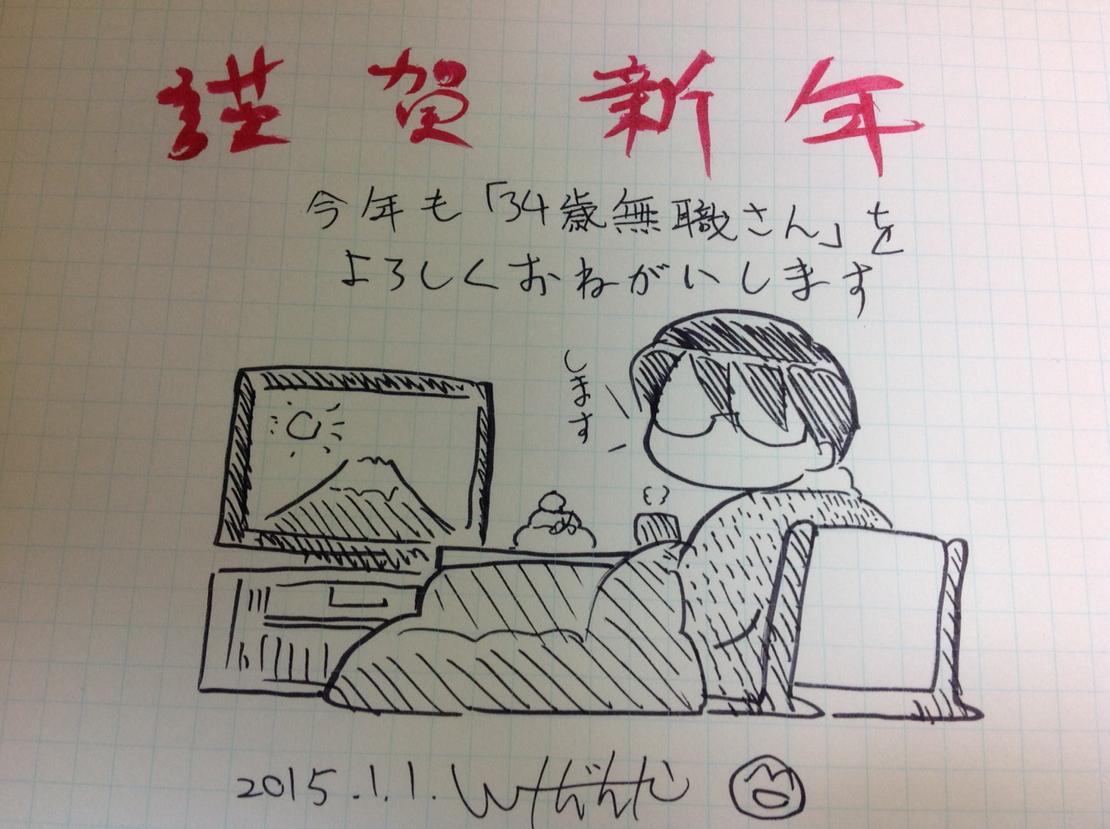 謹賀新年
今年も「34歳無職さん」を
よろしくおねがいします
します
2015.1.1.